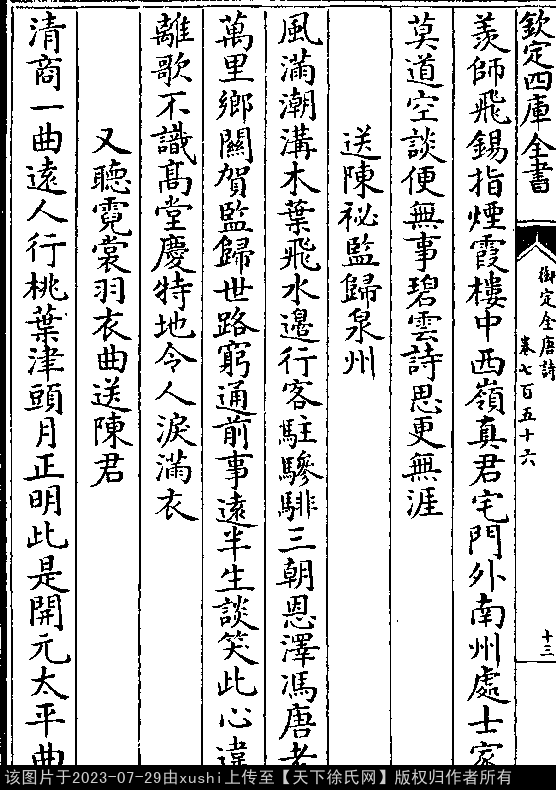 欽定四庫全書
御定全唐詩
卷七百五十六
十三
羨師飛錫指煙霞樓中西嶺真君宅門外南州處士家
莫道空談便無事碧雲詩思更無涯
送陳祕監歸泉州
風滿潮溝木葉飛水邊行客駐驂騑三朝恩澤馮唐老
萬里鄉關賀監歸世路窮通前事遠半生談笑此心違
離歌不識高堂慶特地令人淚滿衣
又聽霓裳羽衣曲送陳君
清商一曲遠人行桃葉津頭月正明此是開元太平曲
该图片于2023-07-29由xushi上传至【天下徐氏网】版权归作者所有